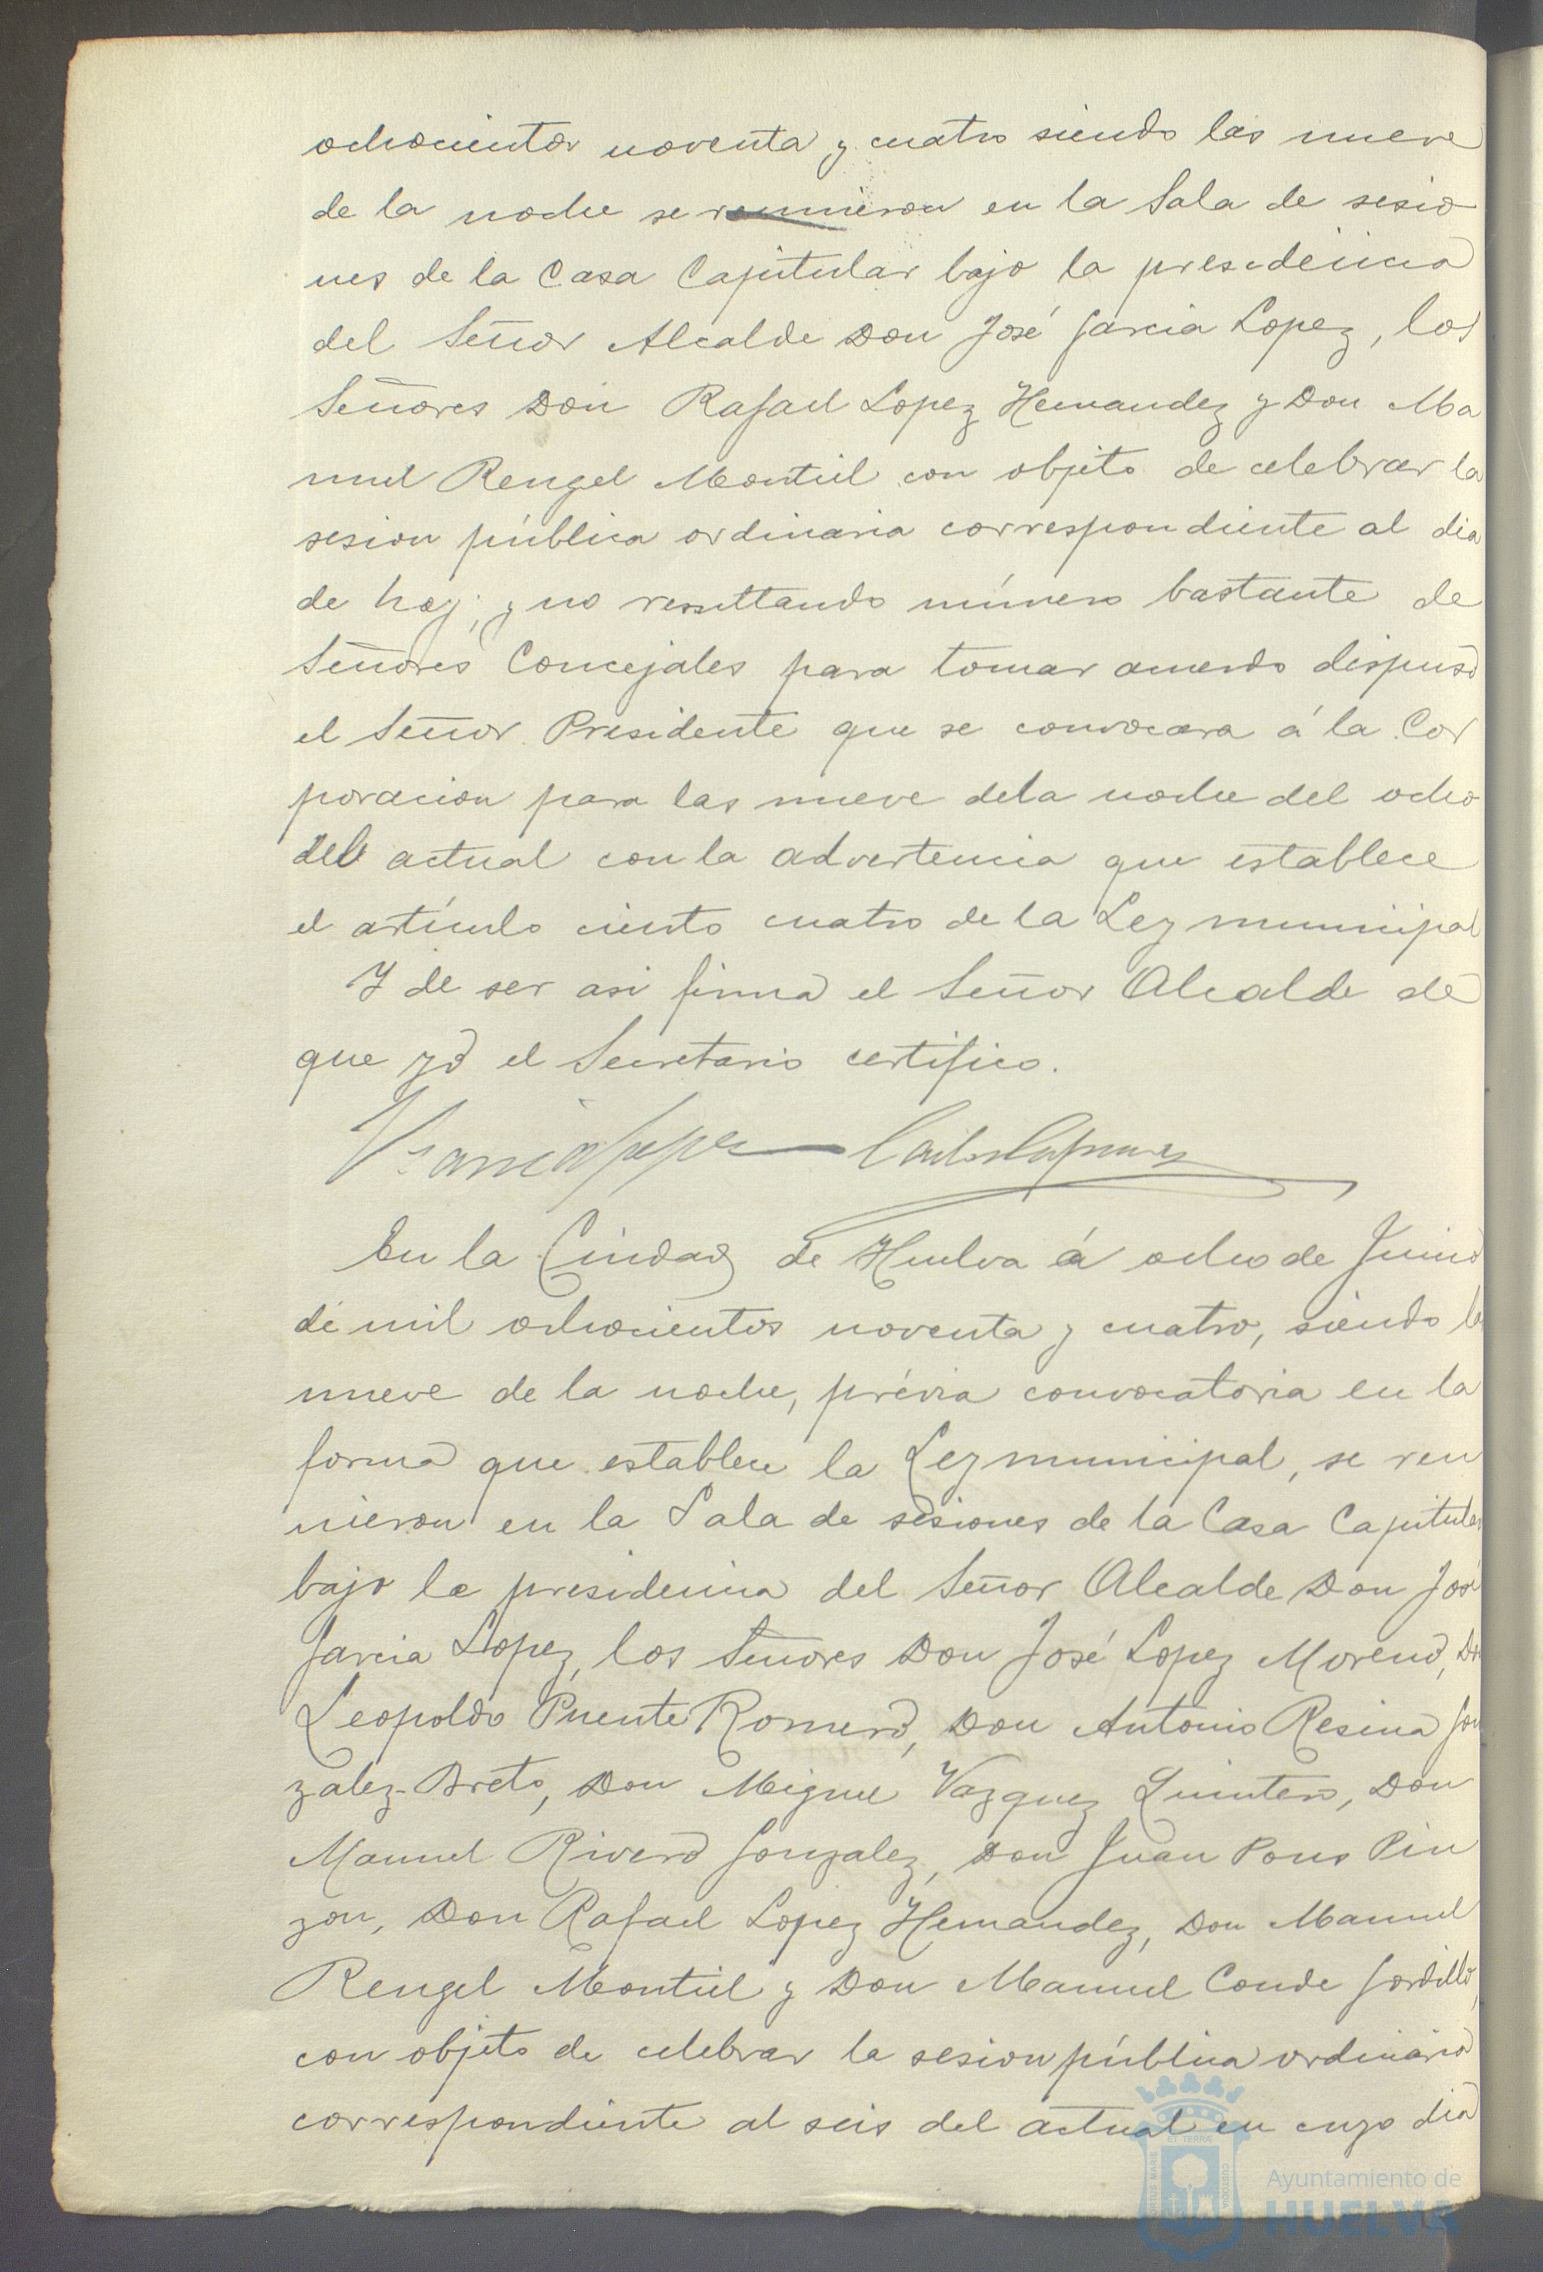 ochocientos noventa y cuatro siendo las nueve
de la noche se reunieron en la Sala de sesio
nes de la Casa Capitular bajo la presidencia
del Señor Alcalde Don José Garcia Lopez, los
Señores Don Rafael Lopez Hernandez y Don Ma
nuel Rengel Montiel con objeto de celebrar la
sesion pública ordinaria correspondiente al dia
de hoy; y no resultando número bastante de
Señores Concejales para tomar acuerdo dispuso
el Señor Presidente que se convocara á la Cor
poracion para las nueve de la noche del ocho
del actual con la advertencia que establece
el artículo ciento cuatro de la Ley municipal
Y de ser asi firma el Señor Alcalde de
que yo el Secretario certifico.
En la Ciudad de Huelva á ocho de Junio
de mil ochocientos noventa y cuatro, siendo la
nueve de la noche, prévia convocatoria en la
forma que establece la Ley municipal, se reu
nieron en la Sala de sesiones de la Casa Capitular
bajo la presidencia del Señor Alcalde Don José
Garcia Lopez, los Señores Don José Lopez Moreno, Dn
Leopoldo Puente Romero, Don Antonio Resina Gon
zalez-Breto, Don Miguel Vazquez Quintero, Don
Manuel Rivero Gonzalez, Don Juan Pons Pin
zon, Don Rafael Lopez Hernandez, Don Manuel
Rengel Montiel y Don Manuel Conde Gordillo,
con objeto de celebrar la sesion pública ordinaria
correspondiente al seis del actual en cuyo dia
Ayuntamiento de
HUELVA